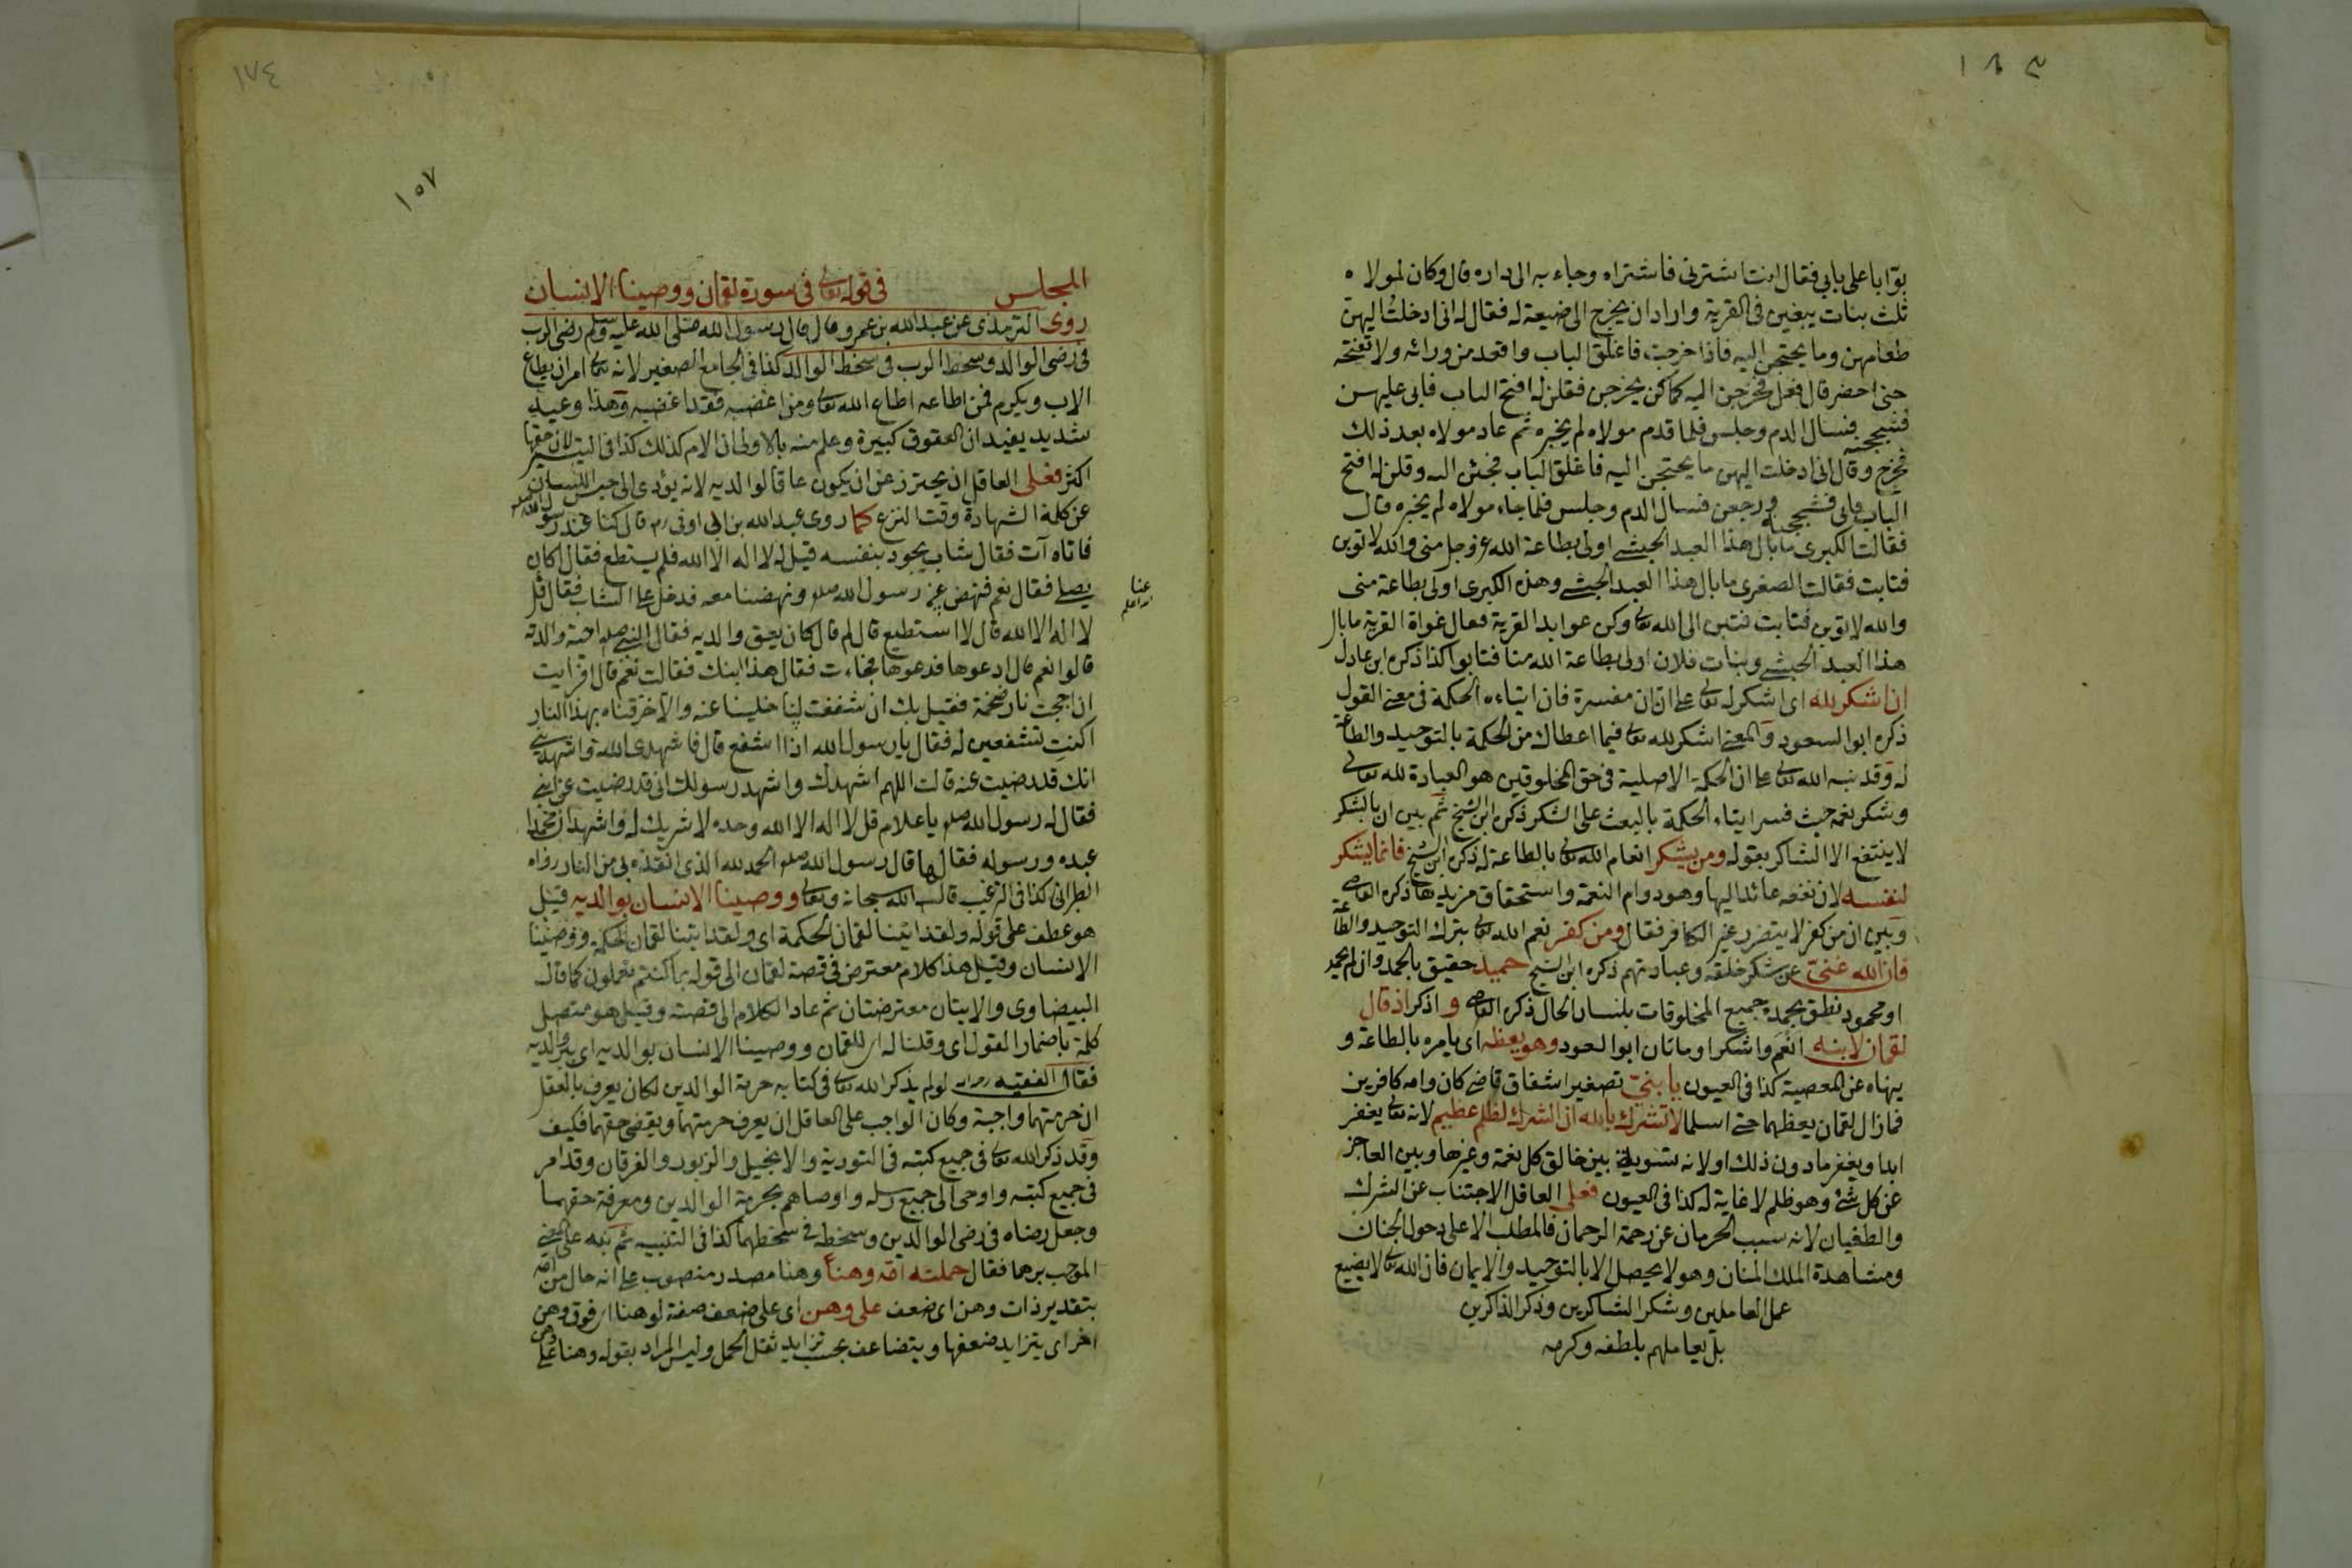 ١٨٣
بوّابا على بابي فقال انت اشترني فاشتراه وجاء به الى داره قال وكان لمولاه
ثلث بنات يبغين فى القرية واراد ان يخرج الى ضيعة له فقال له انى ادخلت اليهن
طعامهن وما يحتجن اليه فاذا خرجت فاغلق الباب واقعد من ورائه ولا تفتحه
حتى احضر قال ففعل فخرجن اليه كما كن يخرجن فقلن له افتح الباب فابى عليهن
فشججنه فسال الدم وجلس فلما قدم مولاه لم يخبره ثم عاد مولاه بعد ذلك
فخرج وقال انى ادخلت اليهن ما يحتجن اليه فاغلق الباب فجئن اليه وقلن له افتح
الباب فابى فشججنه ورجعن فسال الدم وجلس فلما جاء مولاه لم يخبره قال
فقالت الكبرى ما بال هذا العبد الحبشى اولى بطاعة الله عز وجل منى والله لاتوبن
فتابت فقالت الصغرى ما بال هذا العبد الحبشى وهذه الكبرى اولى بطاعة منى
والله لاتوبن فتابت فتبن الى الله تعالى وكن عوابد القرية فقال غواة القرية ما بال
هذا العبد الحبشى وبنات فلان اولى بطاعة الله منا فتابوا كذا ذكره ابن عادل
ان اشكر لله اى اشكر له تعالى على ان ان مفسرة فان ايتاءه الحكمة فى معنى القول
ذكره ابو السعود والمعنى اشكر لله تعالى فيما اعطاك من الحكمة بالتوحيد والطاعة
له وقد نبه الله تعالى على ان الحكمة الاصلية فى حق المخلوقين هو العبادة لله تعالى
وشكر نعمه حيث فسر ايتاء الحكمة بالبعث على الشكر ذكره ابن الشيخ ثم بين ان بالشكر
لا ينتفع الا الشاكر بقوله ومن يشكر انعام الله تعالى بالطاعة له ذكره ابن الشيخ فانما يشكر
لنفسه لان نفعه عائد اليها وهو دوام النعمة واستحقاق مزيدها ذكره القاضى
وبين ان من كفر لا يتضرر غير الكافر فقال ومن كفر نعم الله تعالى بترك التوحيد والطاعة
فان الله غنىّ عن شكر خلقه وعبادتهم ذكره ابن الشيخ حميد حقيق بالحمد وان لم يحمد
او محمود نطق بحمده جميع المخلوقات بلسان الحال ذكره القاضى و اذكر اذ قال
لقمان لابنه انعم واشكر او ماتان ابو السعود وهو يعظه اى يامره بالطاعة و
ينهاه عن المعصية كذا فى العيون يا بنىّ تصغير اشفاق قاضى كان وامه كافرين
فما زال لقمان يعظهما حتى اسلما لا تشرك بالله ان الشرك لظلم عظيم لانه تعالى يغفر
ابدا ويغفر مادون ذلك او لانه تسوية بين خالق كل نعمة وغيرها وبين العاجز
عن كل شئ وهو ظلم لا غاية له كذا فى العيون فعلى العاقل الاجتناب عن الشرك
والطغيان لانه سبب الحرمان عن رحمة الرحمان فالمطلب الاعلى دخول الجنان
ومشاهدة الملك المنان وهو لا يحصل الا بالتوحيد والايمان فان الله تعالى لا يضيع
عمل العاملين وشكر الشاكرين وذكر الذاكرين
بل يعاملهم بلطفه وكرمه
١٨٤
١٥٧
المجلس فى قوله تعالى فى سورة لقمان ووصينا الانسان
روى الترمذى عن عبد الله بن عمرو قال قال رسول الله صلى الله عليه وسلم رضى الرب
فى رضى الوالد وسخط الرب فى سخط الوالد كذا فى الجامع الصغير لانه تعالى امر ان يطاع
الاب ويكرم فمن اطاعه اطاع الله تعالى ومن اغضبه فقد اغضبه وهذا وعيد
شديد يفيد ان العقوق كبيرة وعلم منه بالاولى ان الام كذلك كذا فى التيسير لان حقها
اكثر فعلى العاقل ان يحترز عن ان يكون عاقا لوالديه لانه يؤدى الى حبس اللسان
عن كلمة الشهادة وقت النزع كما روى عبد الله بن ابى اوفى رم قال كنا عند رسول الله صلعم
فاتاه آت فقال شاب يجود بنفسه قيل له لا اله الا الله فلم يستطع فقال اكان
يصلى فقال نعم فنهض رسول الله صلعم ونهضنا معه فدخل على الشاب فقال قل
لا اله الا الله قال لا استطيع قال لم قال كان يعق والديه فقال النبى صلعم احية والدته
قالوا نعم قال ادعوها فدعوها فجاءت فقال هذا ابنك فقالت نعم قال افرايت
ان اججت نار ضخمة فقيل لك ان شفعت لنا خلينا عنه والا حرقناه بهذا النار
اكنتِ تشفعين له فقال يا رسول الله اذا اشفع قال فاشهدى الله واشهدينى
انك قد رضيت عنه قالت اللهم اشهدك واشهد رسولك انى قد رضيت عن ابنى
فقال له رسول الله صلعم يا غلام قل لا اله الا الله وحده لا شريك له واشهد ان محمدا
عبده ورسوله فقالها قال رسول الله صلعم الحمد لله الذى انقذه بى من النار رواه
الطبرانى كذا فى الترغيب قال الله سبحانه وتعالى ووصينا الانسان بوالديه قيل
هو عطف على قوله ولقد اتينا لقمان الحكمة اى ولقد اتينا لقمان الحكمة ووصينا
الانسان وقيل هذا كلام معترض فى قصة لقمان الى قوله بما كنتم تعملون كما قال
البيضاوى والايتان معترضتان ثم عاد الكلام الى قصته وقيل هو متصل
كلمة باضمار القول اى وقلنا له اى للقمان ووصينا الانسان بوالديه اى ببر والديه
فقال الفقيه لو لم يذكر الله تعالى فى كتابه حرمة الوالدين لكان يعرف بالعقل
ان حرمتهما واجبة وكان الواجب على العاقل ان يعرف حرمتهما ويقضى حقهما فكيف
وقد ذكر الله تعالى فى جميع كتبه فى التورية والانجيل والزبور والفرقان وقد امر
فى جميع كتبه واوحى الى جميع رسله واوصاهم بحرمة الوالدين ومعرفة حقهما
وجعل رضاه فى رضى الوالدين وسخطه فى سخطهما كذا فى التنبيه ثم نبه على المعنى
الموجب برهما فقال حملته امّه وهنا وهنا مصدر منصوب على انه حال من امه
بتقدير ذات وهن اى ضعف على وهن اى على ضعف صفة لوهنا اى فوق وهن
اخر اى يتزايد ضعفها ويتضاعف بحسب تزايد ثقل الحمل وليس المراد بقوله وهنا على وهن